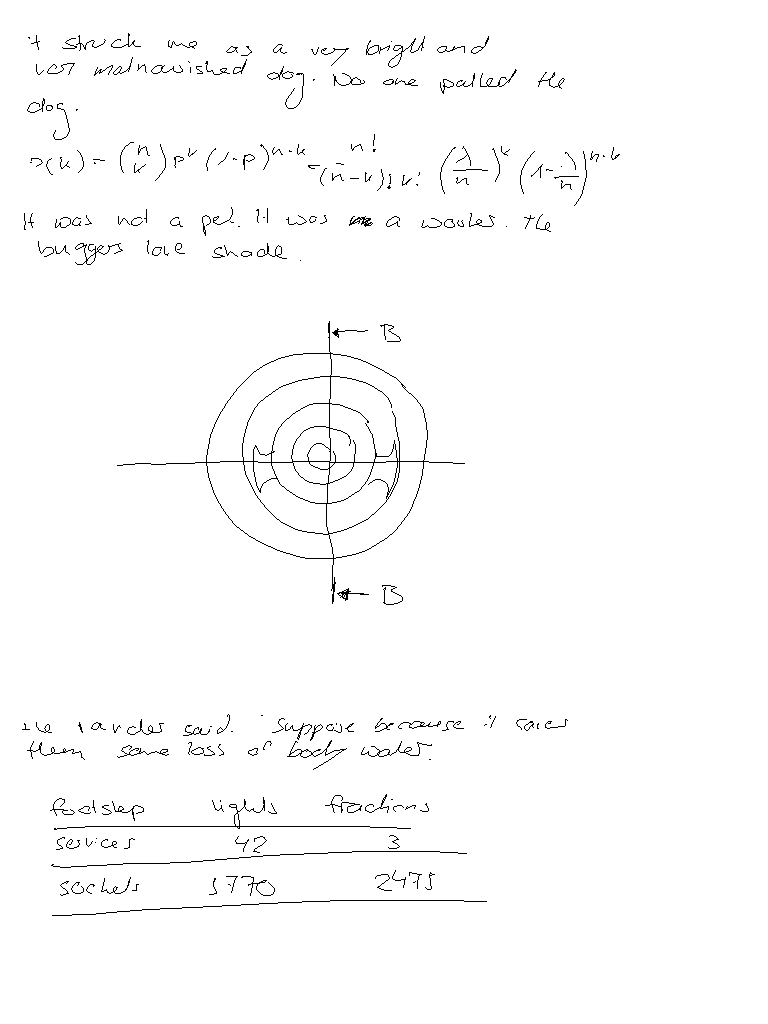 It struck me as a very bright and
very malnourished dog. No one patted the
dog.
P(k) = (n k) p^k (1-p)^{n-k} = n! / ((n-k)! k!) (λ/n)^k (1-λ/n)^{n-k}
It was not a pet. It was a worker. The
buggers love shade.
B
B
The said. Suppose because it saves
them some loss of body water.
footstep lights fractions
services 42 3
sockets 5770 2475